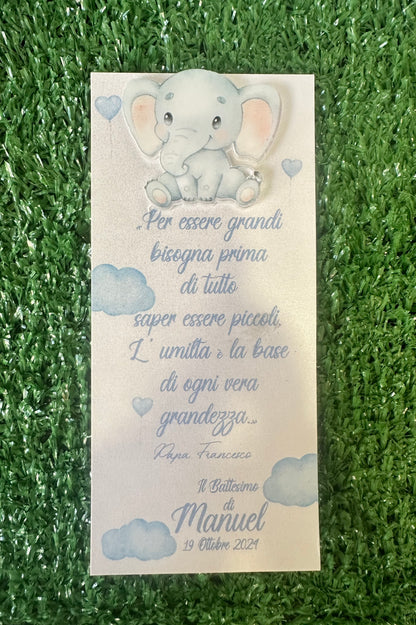 „Per essere grandi
bisogna prima
di tutto
saper essere piccoli,
L' umiltà è la base
di ogni vera
grandezza...„
Papa Francesco
Il Battesimo
di
Manuel
19 Ottobre 2024